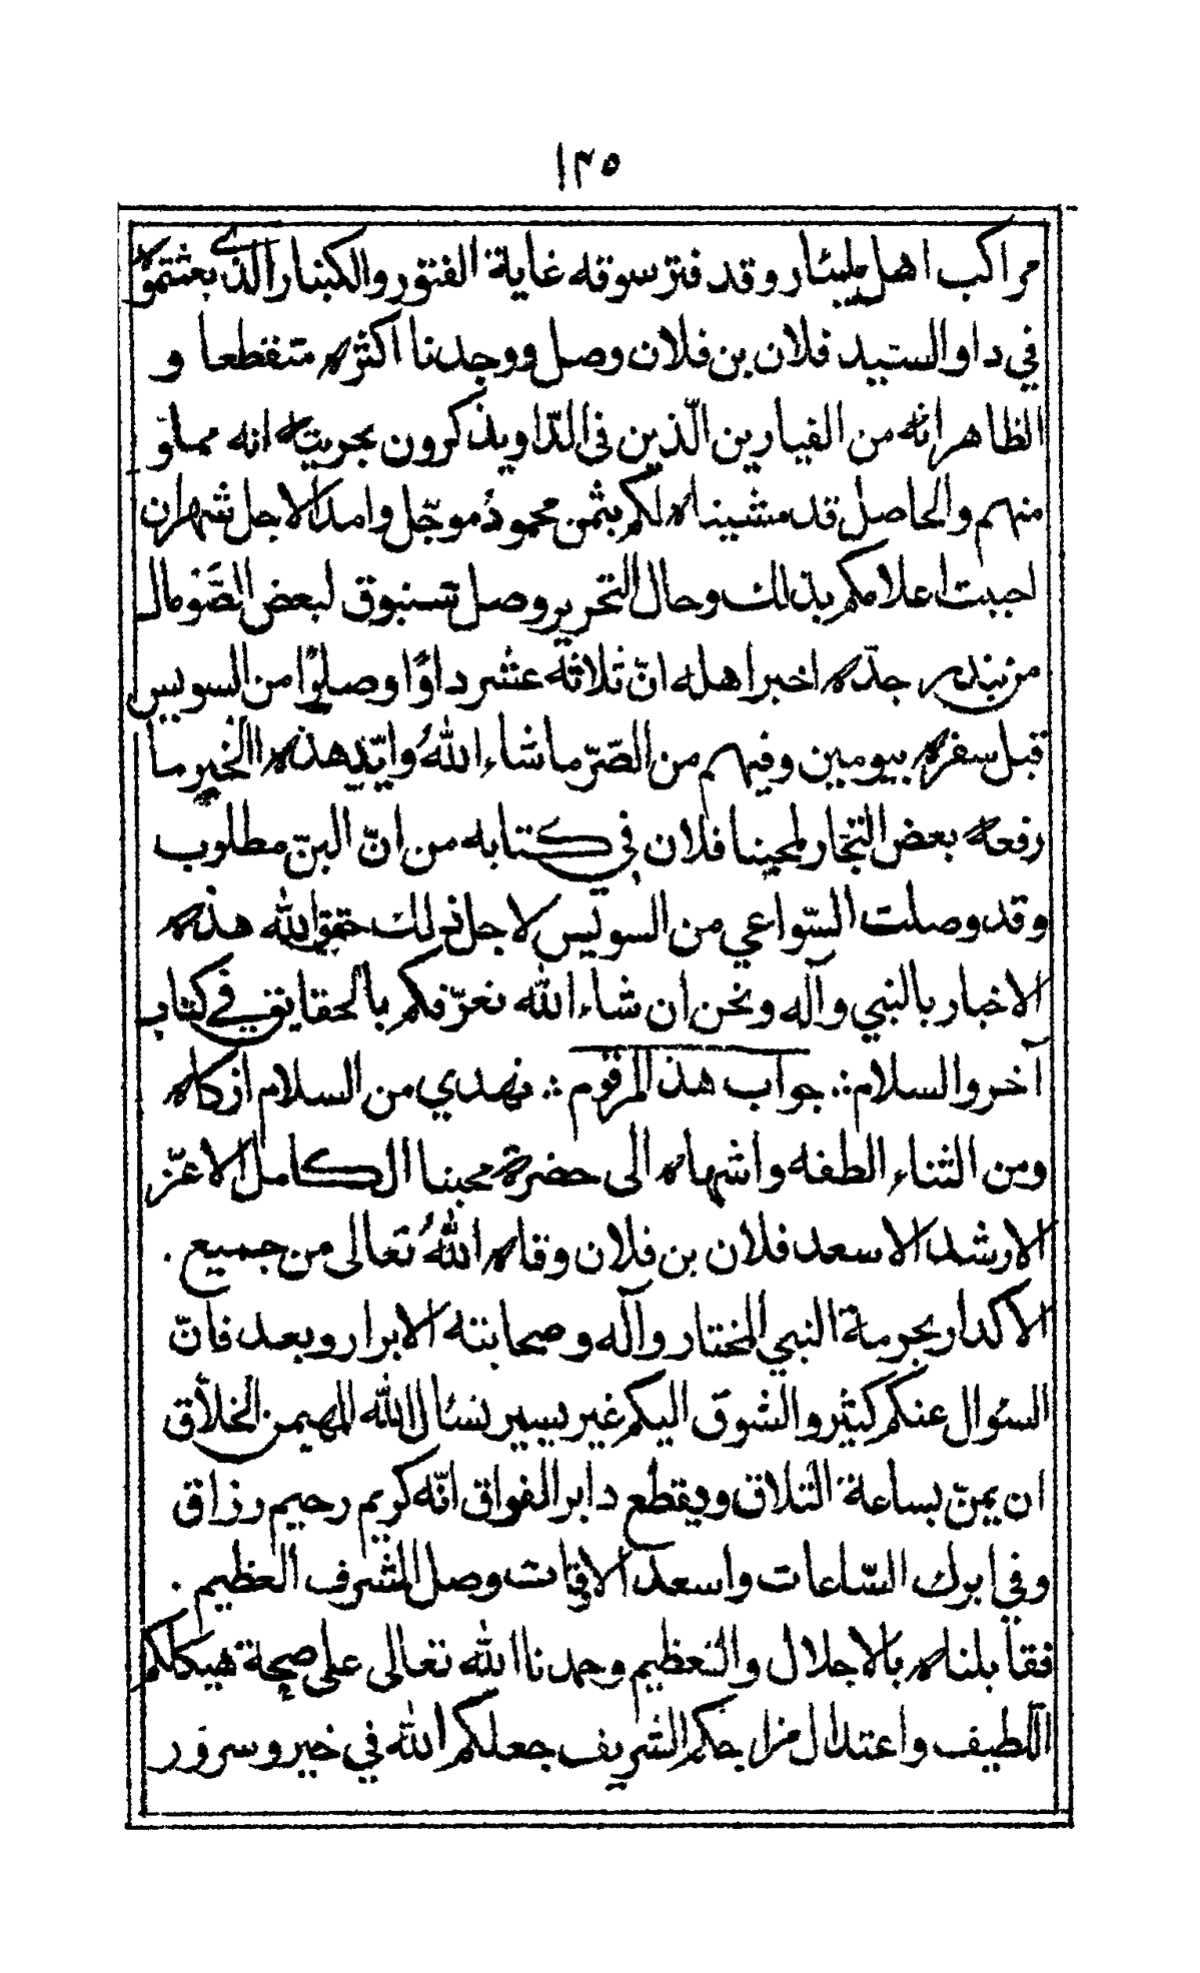 ١٣٥
مراكب اهل مليبار وقد فتر سوقه غاية الفتور والكنبار الذي بعثتموه
في داو السيد فلان بن فلان وصل ووجدنا اكثره متقطعا و
الظاهر انه من القيارين الّذين في الدّاو يذكرون بحريته انه مملوّ
منهم والحاصل قد مشيناه لكم بثمن محمودٌ موجّل وامد الاجل شهران
احببت اعلامكم بذلك وحال التحرير وصل سنبوق لبعض الصَّوْمال
من بندر جدّه اخبر اهله انّ ثلاثة عشر داوًا وصلوْا من السويس
قبل سفره بيومين وفيهم من الصّرّ ما شاء اللهُ وايّد هذه الخبر ما
رفعه بعض التجّار لمحبنا فلان في كتابه من انّ البنّ مطلوب
وقد وصلت السّواعي من السويس لاجل ذلك حقق الله هذه
الاخبار بالنبي وآله ونحن ان شاء الله نعرّفكم بالحقايق في كتاب
آخر والسلام ∴ جواب هذ المرقوم ∴ نهدي من السلام ازكاه
ومن الثناء الطفه واشهاه الى حضرة محبنا الكامل الاعزّ
الارشد الاسعد فلان بن فلان وقاه اللهُ تعالى من جميع .
الاكدار بحرمة النبي المختار وآله وصحابته الابرار وبعد فانّ
السئوال عنكم كثير والشوق اليكم غير يسير نسئال الله المهيمن الخلاّق
ان يمنّ بساعة التلاق ويقطع دابر الفواق انّه كريم رحيم رزاق
وفي ابرك السّاعات واسعد الاقات وصل المشرف العظيم .
فقابلناه بالاجلال والتعظيم وحمدنا الله تعالى على صحة هيكلكم
اللطيف واعتدال مزاجكم الشريف جعلكم الله في خير وسرور